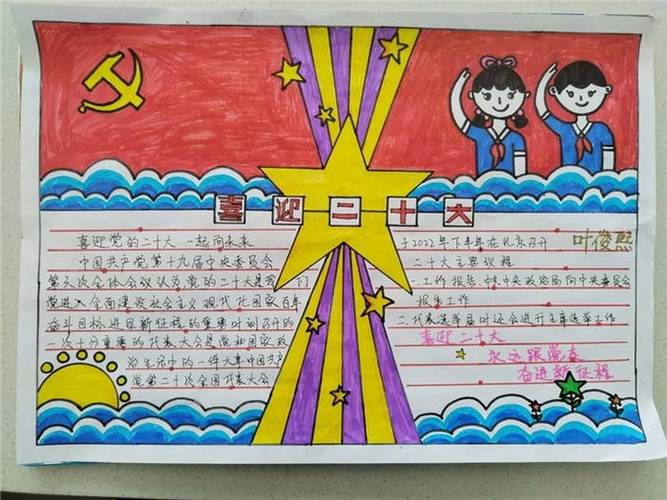 喜迎二十大
喜迎党的二十大 一起向未来
中国共产党第十九届中央委员会
第六次全体会议认为党的二十大是我们
党进入全面建设社会主义现代化国家百年
奋斗目标进军新征程的重要时刻召开的
一次十分重要的代表大会是党和国家政
治生活中的一件大事中国共产
党第二十次全国代表大会
于2022年下半年在北京召开
叶俊熙
二十大主要议程
一.工作报告:中央政治局向中央委员会
报告工作
二.代表选举届时还会进行主席选举工作
喜迎二十大
永远跟党走
奋进新征程